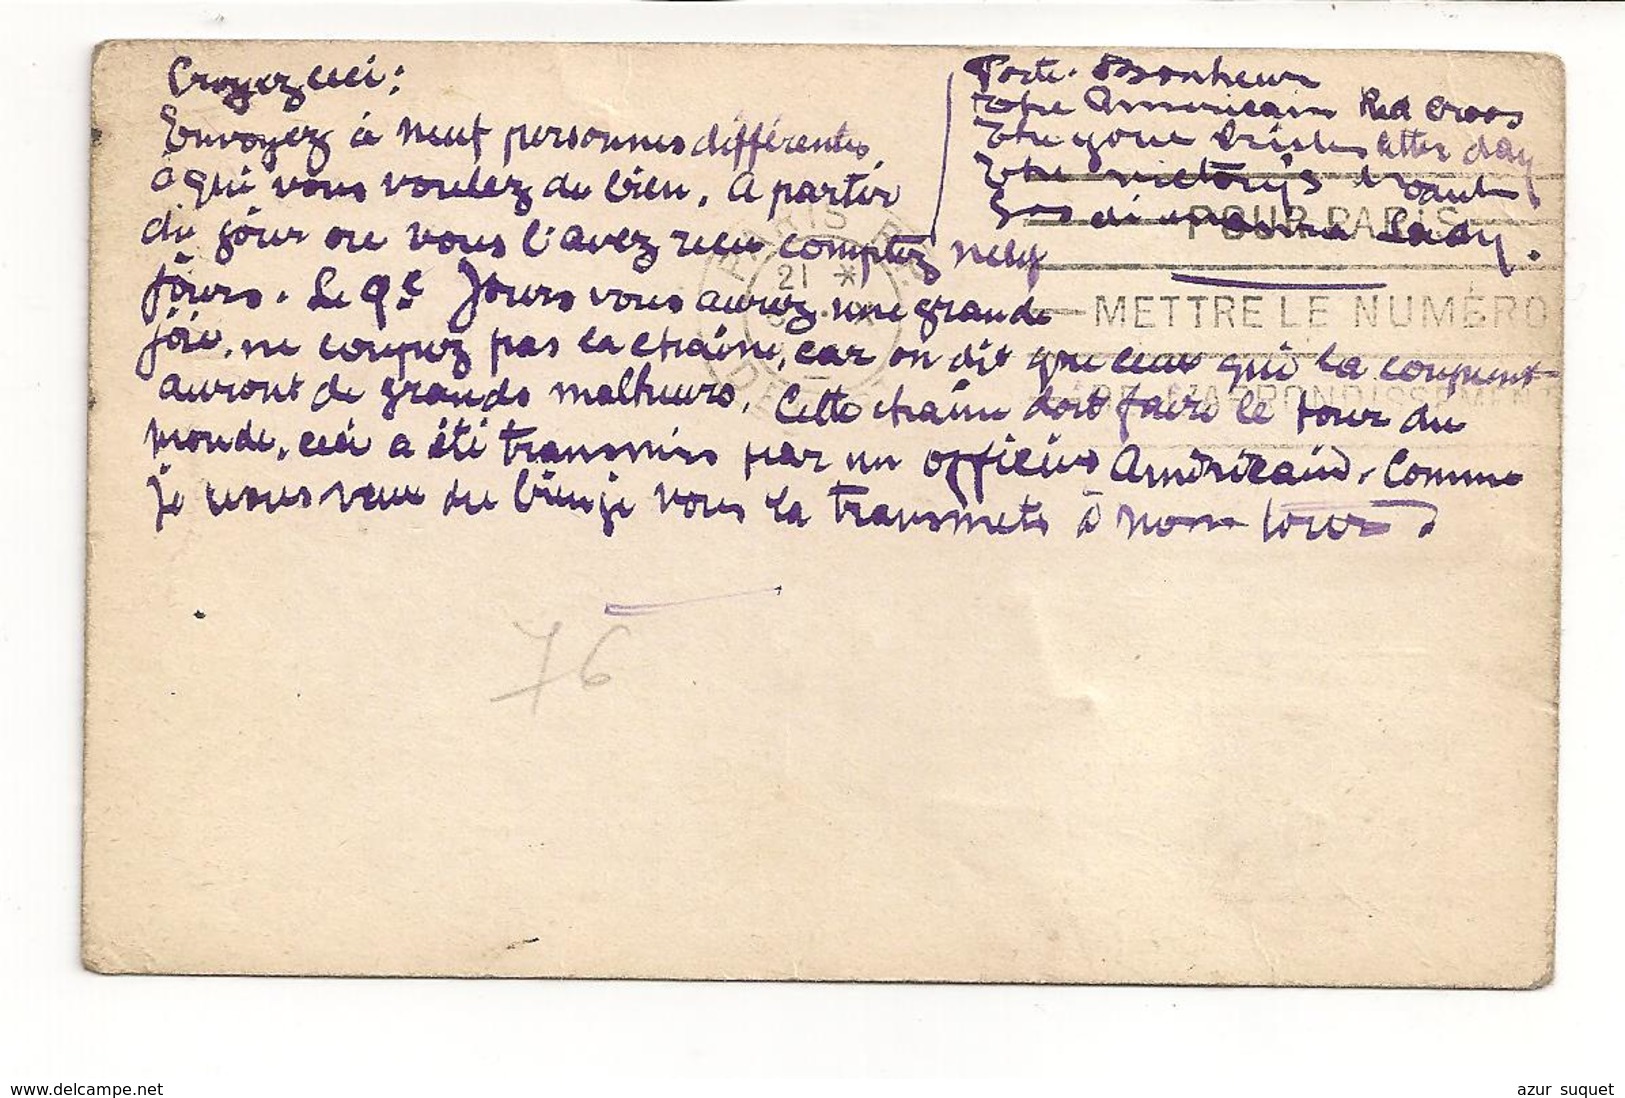 Croyez ceci :
Envoyez à neuf personnes différentes
à qui vous voulez du bien. A partir
du jour ou vous l'avez reçu comptez neuf
jours. Le 9e Jours vous aurez une grande
joie, ne coupez pas la chaîne, car on dit que ceux qui la coupent
auront de grands malheurs. Cette chaîne doit faire le tour du
monde, ceci a été transmis par un officier Américain. Comme
je vous veux du bien je vous la transmets à mon tour.
Porte-Bonheur
The American Red Cross
The letter day
The victory's
Lady.
76
PARIS
21 *
POUR PARIS
METTRE LE NUMÉRO
DE L'ARRONDISSEMENT
www.delcampe.net
azur_suquet